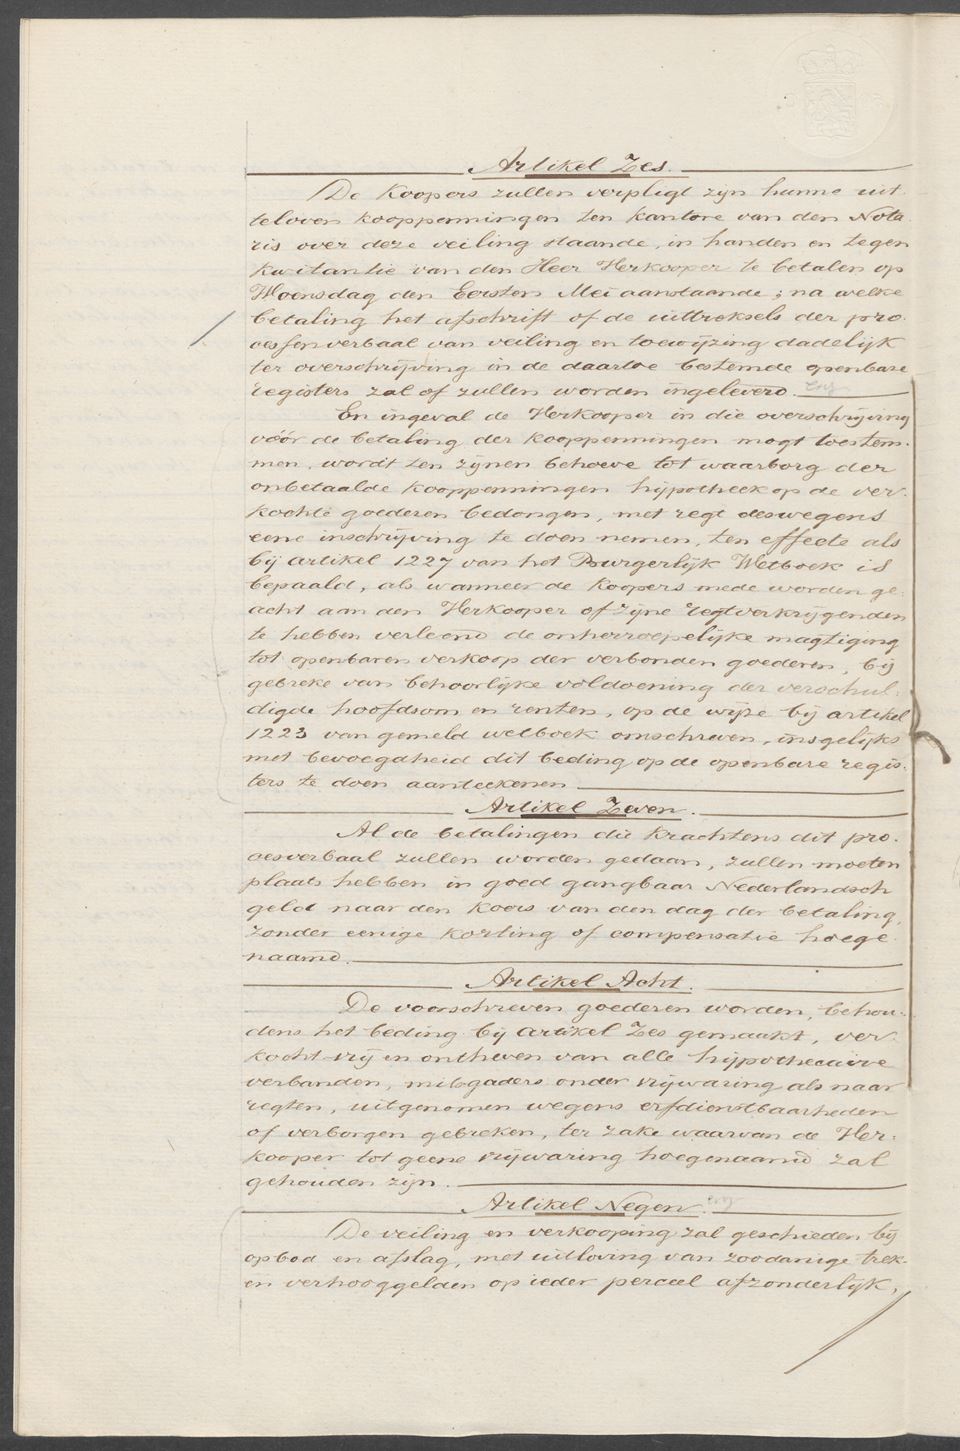 Artikel Zes.
De Koopers zullen verpligt zijn hunne uit
teloven kooppenningen ten kantore van den Nota
ris over deze veiling staande, in handen en tegen
kwitantie van den Heer Verkooper te betalen op
Woensdag den Eersten Mei aanstaande; na welke
betaling het afschrift of de uittreksels der pro.
cessenverbaal van veiling en toewijzing dadelijk
ter overschrijving in de daartoe bestemde openbare
registers zal of zullen worden ingeleverd. enz
En ingeval de Verkooper in die overschrijving
vóór de betaling der kooppenningen mogt toestem.
men, wordt ten zijnen behoeve tot waarborg der
onbetaalde kooppenningen hijpotheek op de ver.
kochte goederen bedongen, met regt deswegens
eene inschrijving te doen nemen, ten effecte als
bij artikel 1227 van het Burgerlijk Wetboek is
bepaald, als wanneer de Koopers mede worden ge.
acht aan den Verkooper of zijne regtverkrijgenden
te hebben verleend de onherroepelijke magtiging
tot openbaren verkoop der verbonden goederen, bij
gebreke van behoorlijke voldoening der verschul.
digde hoofdsom en renten, op de wijze bij artikel
1223 van gemeld wetboek omschreven, insgelijks
met bevoegdheid dit beding op de openbare regis.
ters te doen aanteekenen
Artikel Zeven.
Al de betalingen die krachtens dit pro.
cesverbaal zullen worden gedaan, zullen moeten
plaats hebben in goed gangbaar Nederlandsch
geld naar den koers van den dag der betaling,
zonder eenige korting of compensatie hoege.
naamd.
Artikel Acht.
De voorschreven goederen worden, behou.
dens het beding bij artikel Zes gemaakt, ver.
kocht vrij en ontheven van alle hijpothecaire
verbanden, mitsgaders onder vrijwaring als naar
regten, uitgenomen wegens erfdienstbaarheden
of verborgen gebreken, ter zake waarvan de Ver.
kooper tot geene vrijwaring hoegenaamd zal
gehouden zijn.
Artikel Negen. enz
De veiling en verkooping zal geschieden bij
opbod en afslag, met uitloving van zoodanige trek.
en verhooggelden op ieder perceel afzonderlijk,